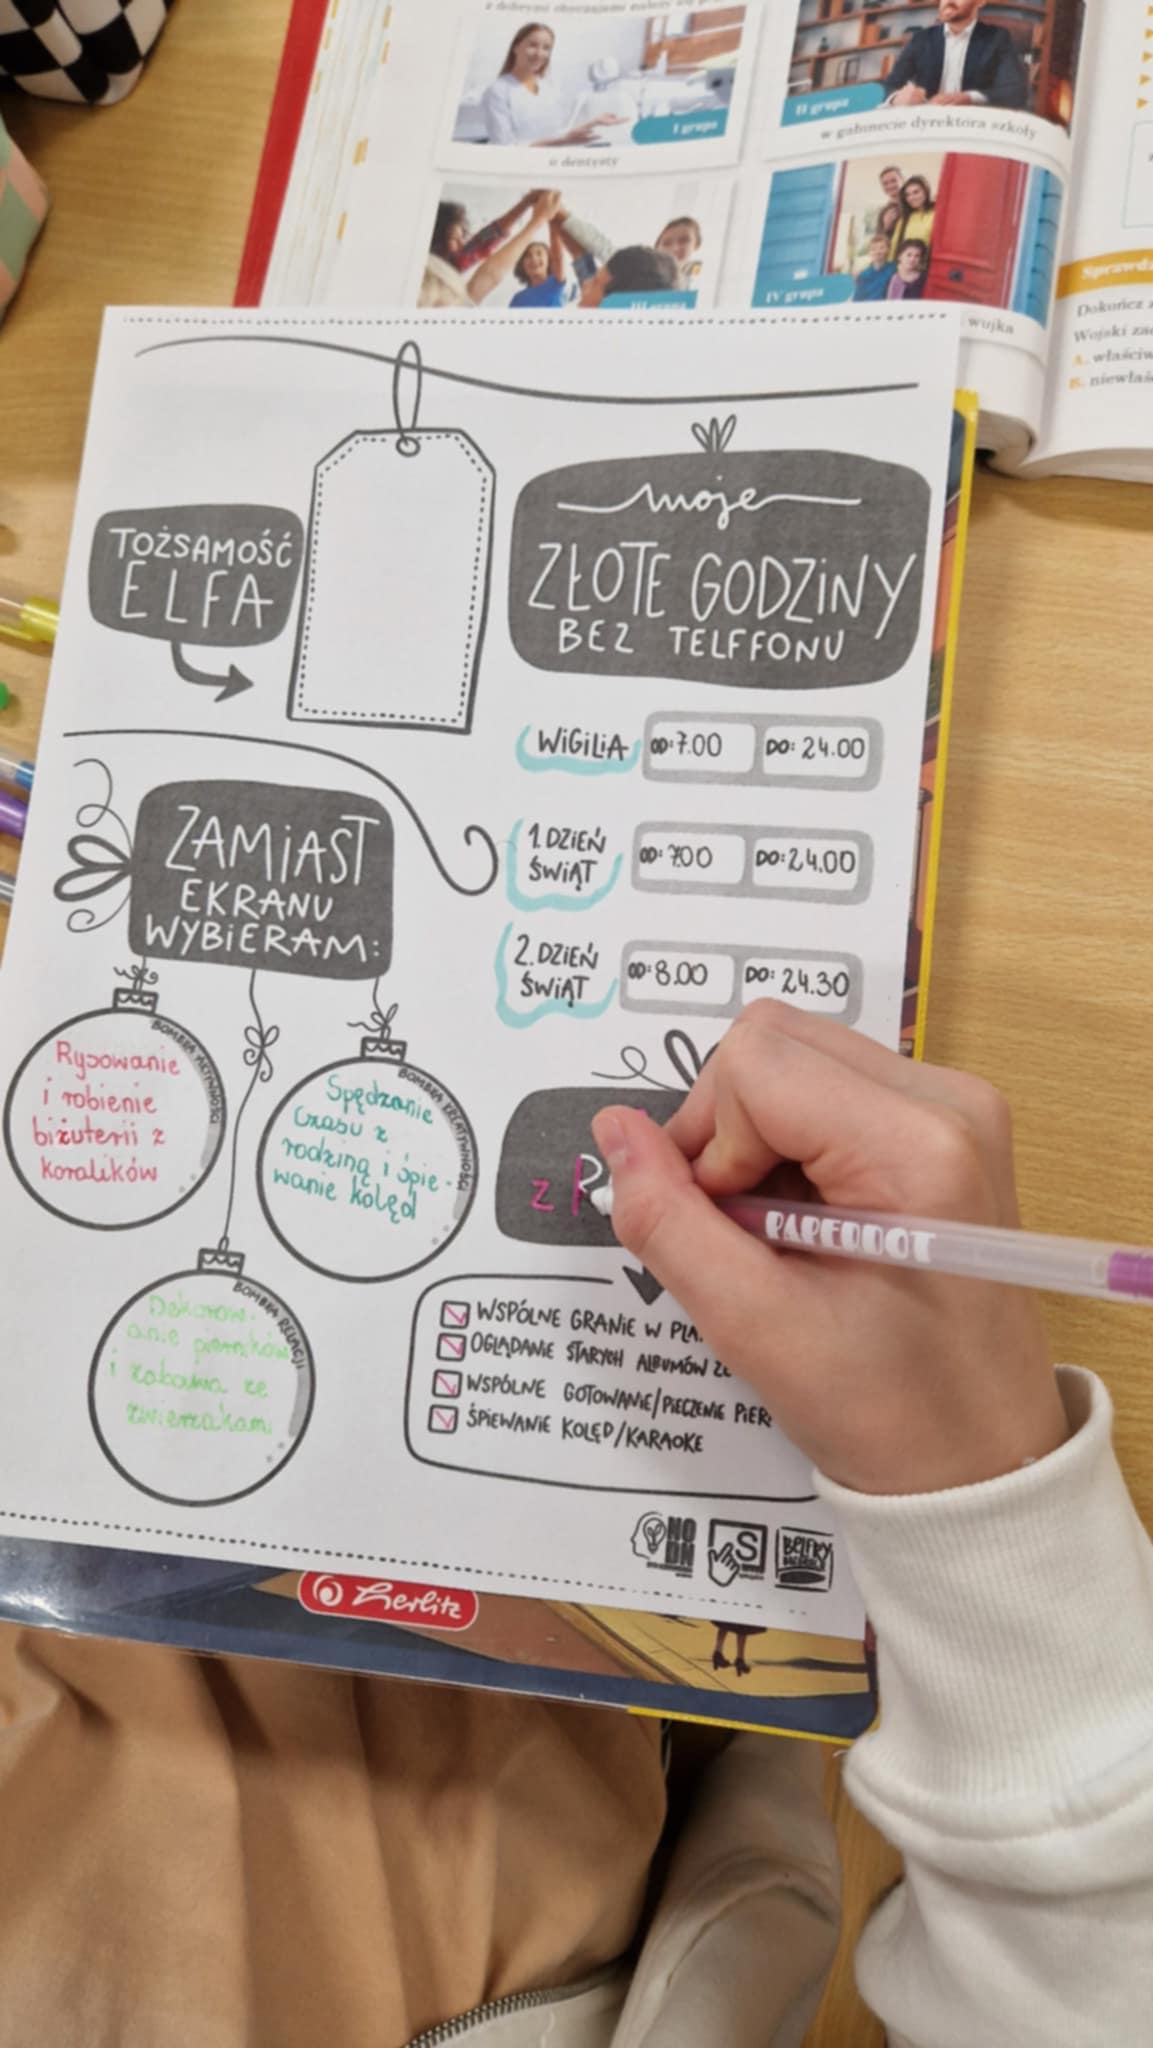 z dobrymi obyczajami należy się
I grupa
u dentysty
II grupa
w gabinecie dyrektora szkoły
III grupa
IV grupa
wujka
Sprawdź
Dokończ
Wojski
A. właściw
B. niewłaś
TOŻSAMOŚĆ
ELFA
moje
ZŁOTE GODZiNY
BEZ TELFFONU
WiGiLiA OD: 7.00 DO: 24.00
1. DZiEŃ
ŚWiĄT
OD: 7.00 DO: 24.00
2. DZiEŃ
ŚWiĄT
OD: 8.00 DO: 24.30
ZAMiAST
EKRANU
WYBiERAM:
BOMBKA AKTYWNOŚCI
Rysowanie
i robienie
biżuterii z
koralików
BOMBKA KREATYWNOŚCI
Spędzanie
czasu z
rodziną i śpie-
wanie kolęd
BOMBKA RELACJI
Dekorow-
anie pierników
i zabawa ze
zwierzakami
z R
WSPÓLNE GRANiE W
OGLĄDANIE STARYCH ALBUMÓW
WSPÓLNE GOTOWANiE/PIECZENIE
ŚPIEWANiE KOLĘD/KARAOKE
NO
DN
S
BELFRY
PAPERDOT
Herlitz